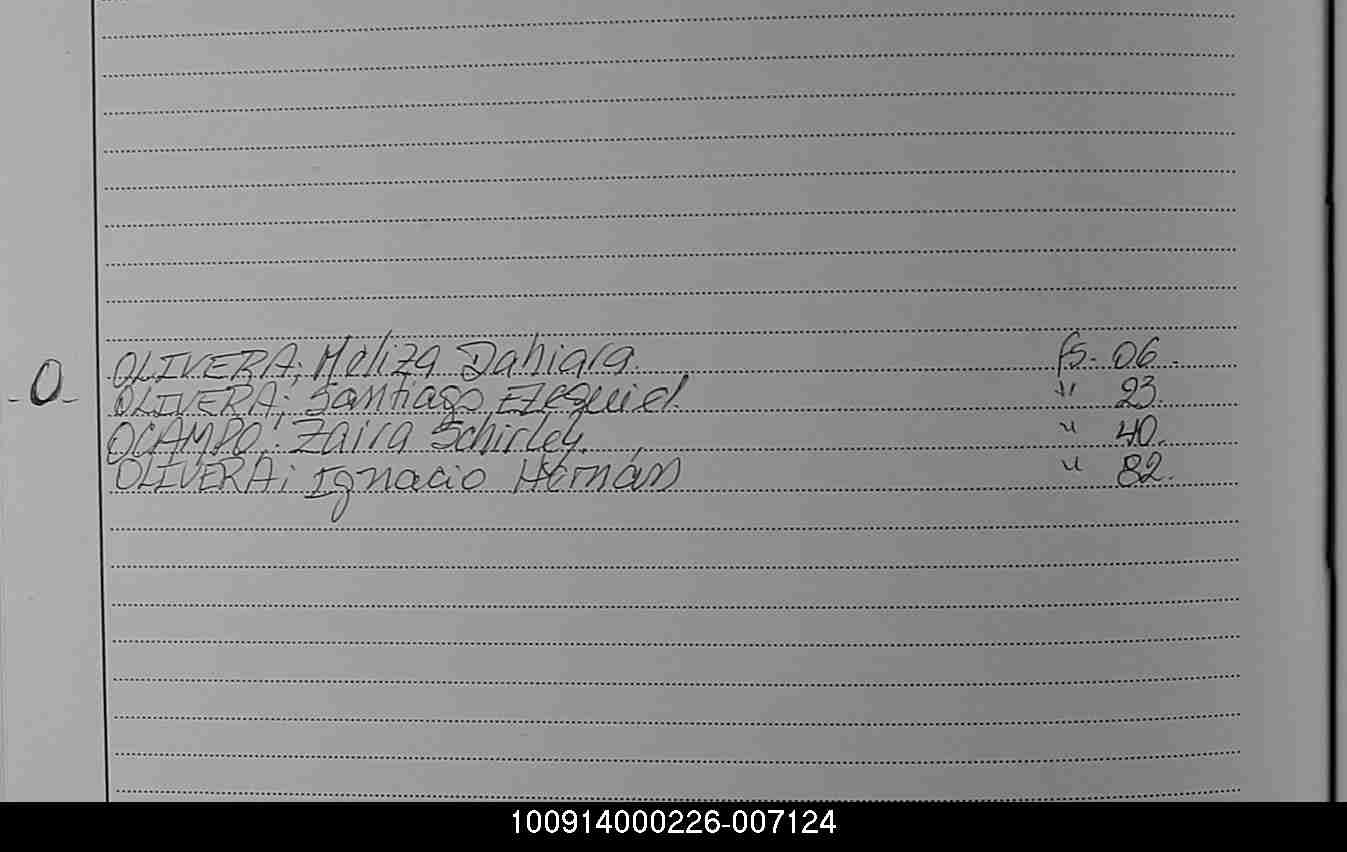 -O-
OLIVERA; Meliza Dahiara. fs. 06.
OLIVERA; Santiago Ezequiel. " 23.
OCAMPO; Zaira Schirley. " 40.
OLIVERA; Ignacio Hernán " 82.
100914000226-007124